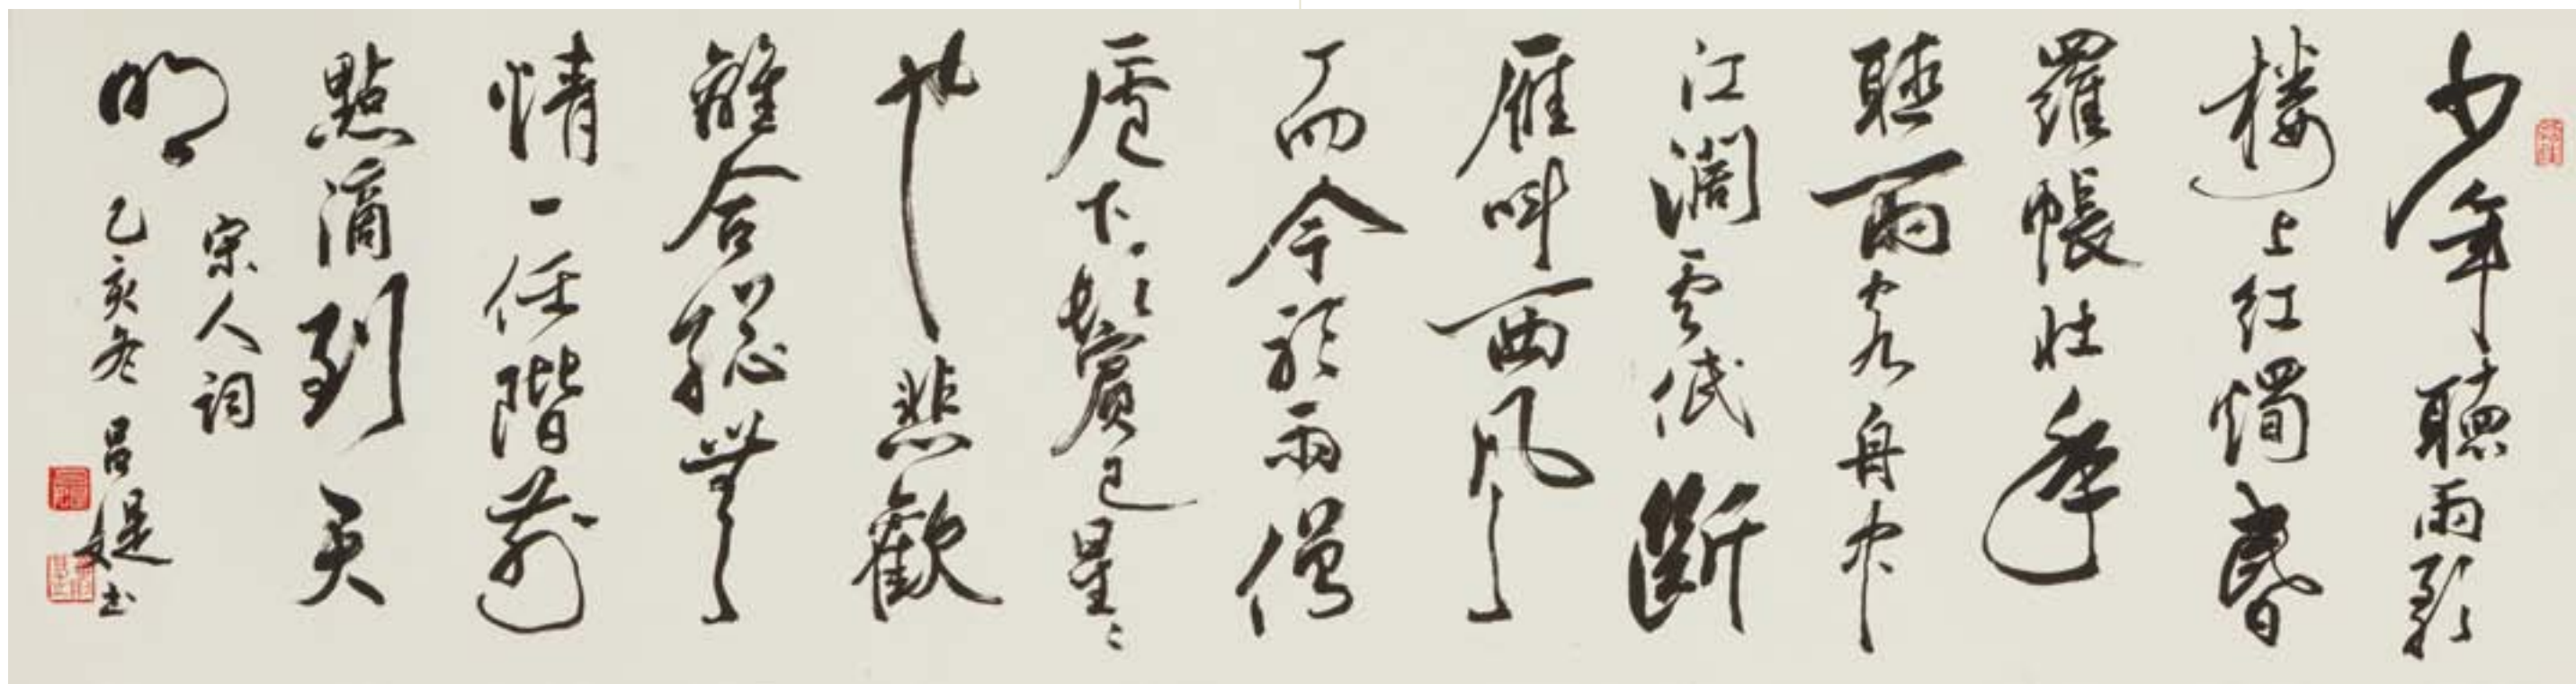 少年聽雨歌
楼上紅燭昏
羅帳壯年
聽雨客舟中
江闊雲低斷
雁叫西風
而今聽雨僧
廬下鬢已星〻
也悲歡
離合總無
情一任階前
點滴到天
明
宋人詞
乙亥冬 呂媞书